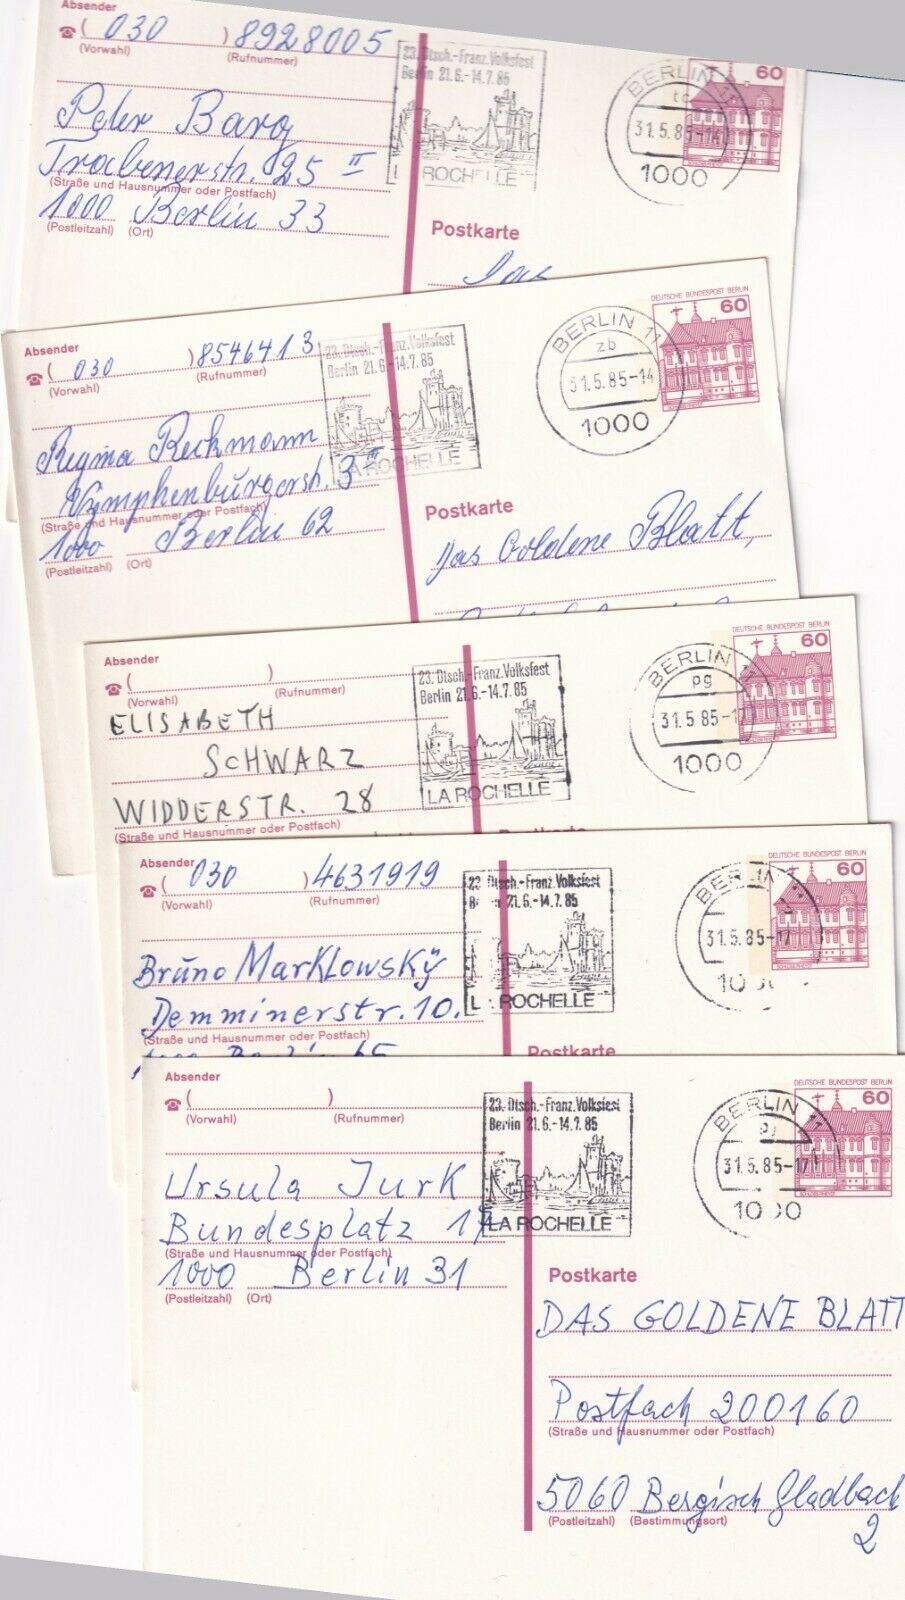 Absender
☎ ( 030 ) 8928005
(Vorwahl) (Rufnummer)
Peter Barg
Trabenerstr. 25 II
(Straße und Hausnummer oder Postfach)
1000 Berlin 33
(Postleitzahl) (Ort)
23. Dtsch.-Franz. Volksfest
Berlin 21.6.-14.7.85
ROCHELLE
BERLIN 11
31.5.85-14
1000
60
Postkarte
Das
Absender
☎ ( 030 ) 8546413
(Vorwahl) (Rufnummer)
Regina Reckmann
Nymphenburgerstr. 3 II
(Straße und Hausnummer oder Postfach)
1000 Berlin 62
(Postleitzahl) (Ort)
23. Dtsch.-Franz. Volksfest
Berlin 21.6.-14.7.85
LA ROCHELLE
BERLIN 1
zb
31.5.85-14
1000
DEUTSCHE BUNDESPOST BERLIN
60
Postkarte
Das Goldene Blatt,
Absender
☎ ( )
(Vorwahl) (Rufnummer)
ELISABETH
SCHWARZ
WIDDERSTR. 28
(Straße und Hausnummer oder Postfach)
23. Dtsch.-Franz. Volksfest
Berlin 21.6.-14.7.85
LA ROCHELLE
BERLIN 11
pg
31.5.85-17
1000
DEUTSCHE BUNDESPOST BERLIN
60
Postkarte
Absender
☎ ( 030 ) 4631919
(Vorwahl) (Rufnummer)
Bruno Marklowsky
Demminerstr. 10.
(Straße und Hausnummer oder Postfach)
1000 Berlin 65
Dtsch.-Franz. Volksfest
21.6.-14.7.85
ROCHELLE
31.5.85-17
DEUTSCHE BUNDESPOST BERLIN
60
Postkarte
Absender
☎ ( )
(Vorwahl) (Rufnummer)
Ursula Jurk
Bundesplatz 17
(Straße und Hausnummer oder Postfach)
1000 Berlin 31
(Postleitzahl) (Ort)
23. Dtsch.-Franz. Volksfest
Berlin 21.6.-14.7.85
LA ROCHELLE
BERLIN 11
31.5.85-17
1000
DEUTSCHE BUNDESPOST BERLIN
60
Postkarte
DAS GOLDENE BLATT
Postfach 200160
(Straße und Hausnummer oder Postfach)
5060 Bergisch Gladbach
(Postleitzahl) (Bestimmungsort)
2